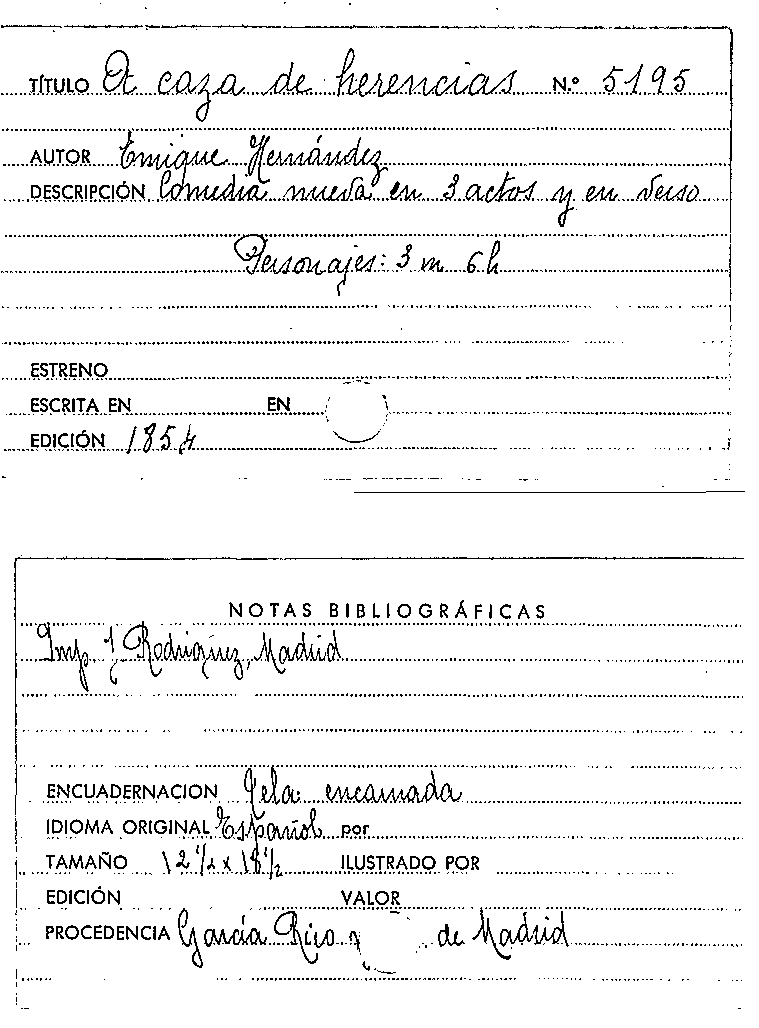 TÍTULO A caza de herencias N.º 5195
AUTOR Enrique Hernández
DESCRIPCIÓN Comedia nueva en 3 actos y en verso
Personajes: 3 m 6 h
ESTRENO
ESCRITA EN EN
EDICIÓN 1854
NOTAS BIBLIOGRÁFICAS
Imp. J Rodríguez, Madrid
ENCUADERNACION Tela encarnada
IDIOMA ORIGINAL Español por
TAMAÑO 12 1/2 x 18 1/2 ILUSTRADO POR
EDICIÓN VALOR
PROCEDENCIA García Rico y de Madrid